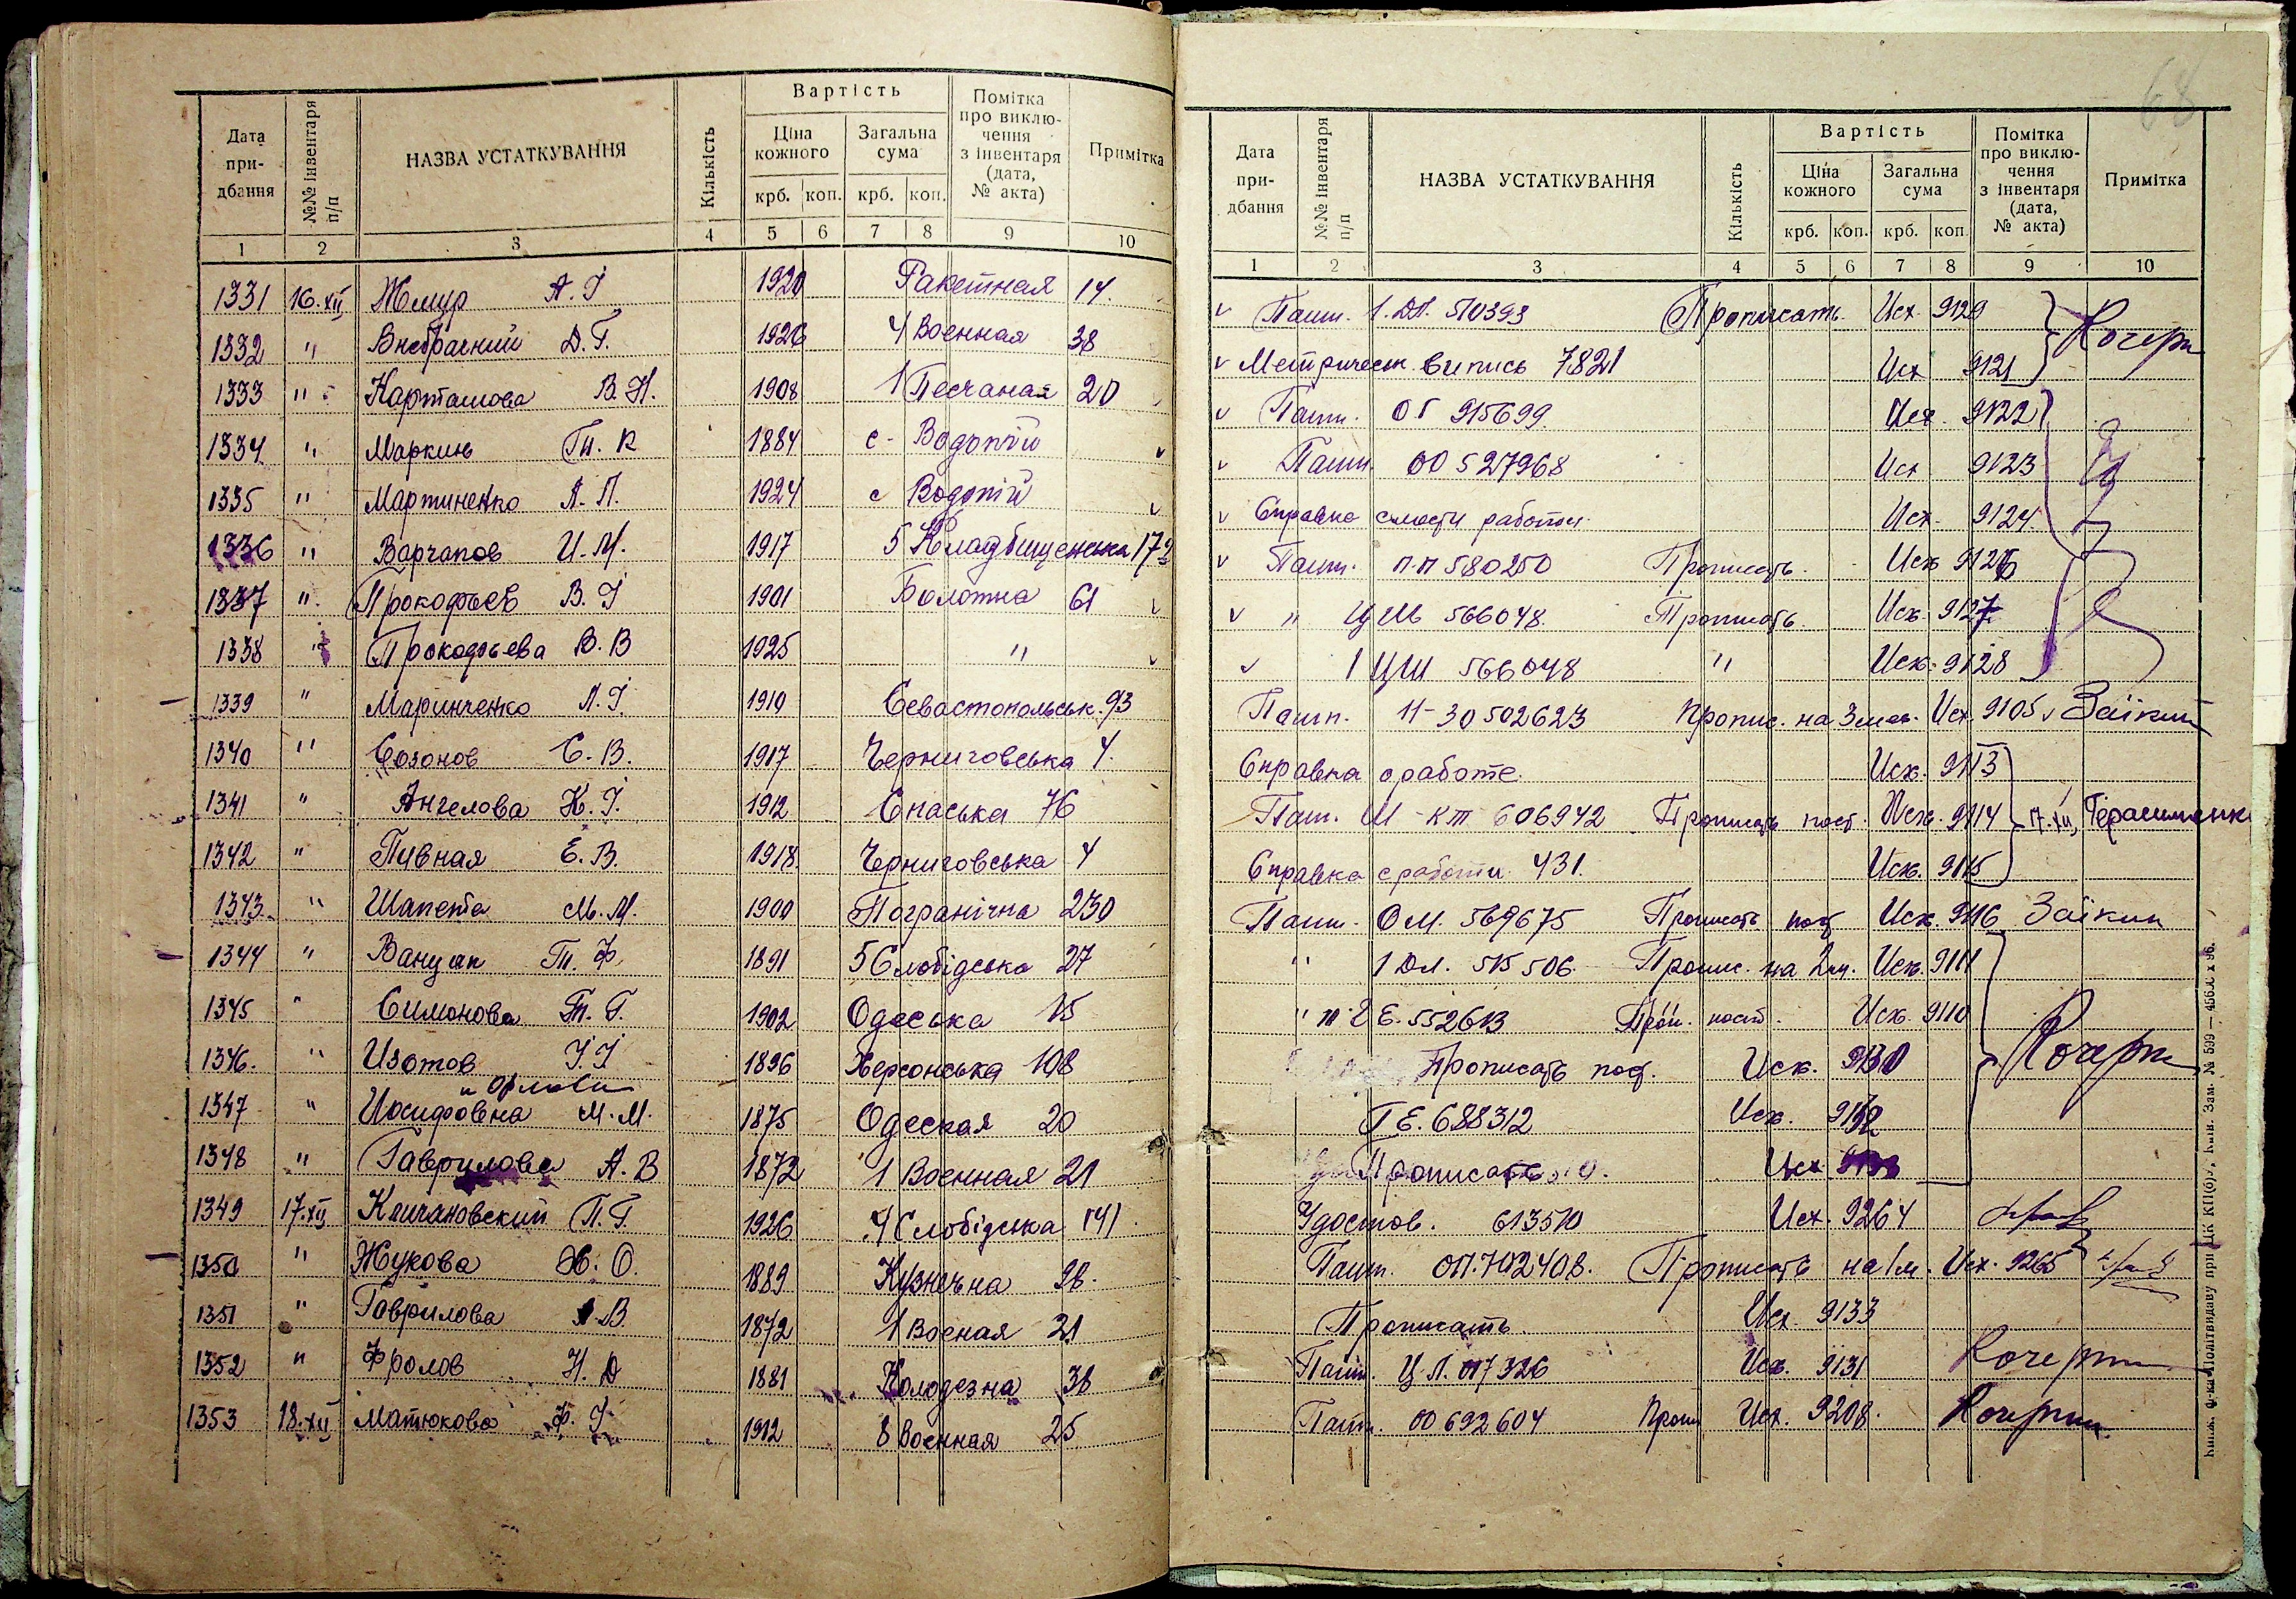 Дата при- дбання №№ інвентаря п/п НАЗВА УСТАТКУВАННЯ Кількість Вартість Ціна кожного Загальна сума Помітка про виклю- чення з інвентаря (дата, № акта) Примітка
крб. коп. крб. коп.
1 2 3 4 5 6 7 8 9 10
1331 16.XII Жмур А. І 1920 Ракетная 14.
1332 " Д. Г. 1926 4 Военная 38
1333 " Карташова В. Н. 1908 1 Песчаная 20
1334 " Маркин Т. К 1884 с - Водопій
1335 " Мартиненко А. П. 1924 с Водопій
1336 " Варчапов И. М. 1917 5 Кладбищенська 172
1337 " Прокофьев В. І 1901 Болотна 61
1338 " Прокофьева В. В 1925 "
1339 " Маринченко А. І. 1910 Севастопольськ. 93
1340 " Созонов С. В. 1917 Черниговська 4.
1341 " Ангелова К. І. 1912 Спаська 76
1342 " Пивная Е. В. 1918 Черниговська 4
1343 " Шапента М. М. 1900 Погранічна 230
1344 " Ванцак Т. Ф. 1891 5 Слобідська 27
1345 " Симонова Т. Г. 1902 Одеська 15
1346. " Изотов І. І 1896 Херсонська 108
1347 " Иосифовна М. М. 1875 Одеская 20
1348 " Гаврилова А. В 1872 1 Военная 21
1349 17.XII Кличановский П. Г. 1926 4 Слобідська 141
1350 " Жукова О. 1889 Кузнечна 98.
1351 " Гаврилова А. В. 1872 1 Воєная 21
1352 " Фролов Н. Д 1881 Колодезна 38
1353 18.XII Матюкова Ф. І. 1912 8 Военная 25
68
Дата при- дбання №№ інвентаря п/п НАЗВА УСТАТКУВАННЯ Кількість Вартість Ціна кожного Загальна сума Помітка про виклю- чення з інвентаря (дата, № акта) Примітка
крб. коп. крб. коп.
1 2 3 4 5 6 7 8 9 10
Пашп. 510393 Прописать Исх. 9129
Метрическ. випись 7821 Исх 9121
Пашп. 915699 Исх. 9122
Пашп. 00 527968 Исх 9123
Справка работи. Исх. 9124.
Пашп. П.П 580250 Прописать. Исх 9126
" 566048. Прописать. Исх. 9127
" 1 ЦШ 566048 " Исх. 9128
Пашп. 11-30 502623 Пропис. на 3 мес. Исх. 9105 Заікин
Справка о работе. Исх. 9113
Пашп. 606942 Прописать пост. Исх. 9114 17.XII
Справка с работи 431. Исх. 9115
Пашп. ОМ. 569675 Прописать пост Исх. 9116 Заікин
" 1 515506. Пропис. на 2 м. Исх. 9111
" Е. 552613 Проп. пост. Исх. 9110
Прописать пост. Исх. 9130
Г Е. 688312 Исх. 9132
Прописать Исх
Удостов. 613510 Исх. 9264
Пашп. ОП. 702408. Прописать на 1 м. Исх. 9265
Прописать. Исх. 9133
Пашп. Ц Л. 017326 Исх. 9131
Пашп. 00 692604 Проп Исх. 9208.